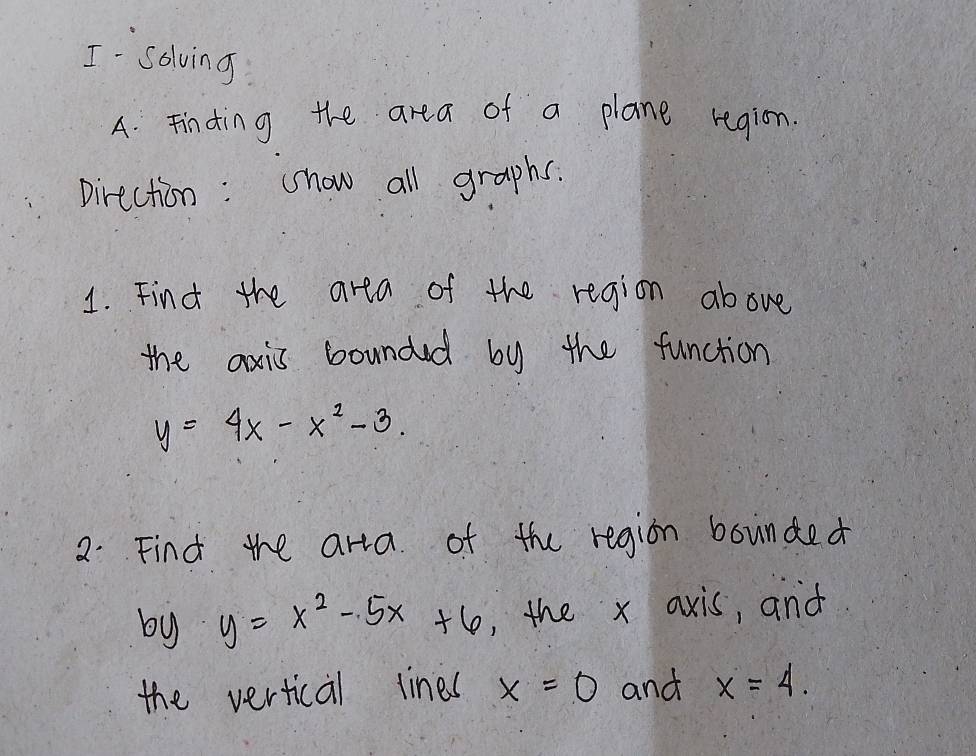 I - Solving
A. Finding the area of a plane region.
Direction: Show all graphs.
1. Find the area of the region above
the axis bounded by the function
y = 4x - x² - 3.
2. Find the area of the region bounded
by y = x² - 5x + 6, the x axis, and
the vertical lines x = 0 and x = 4.